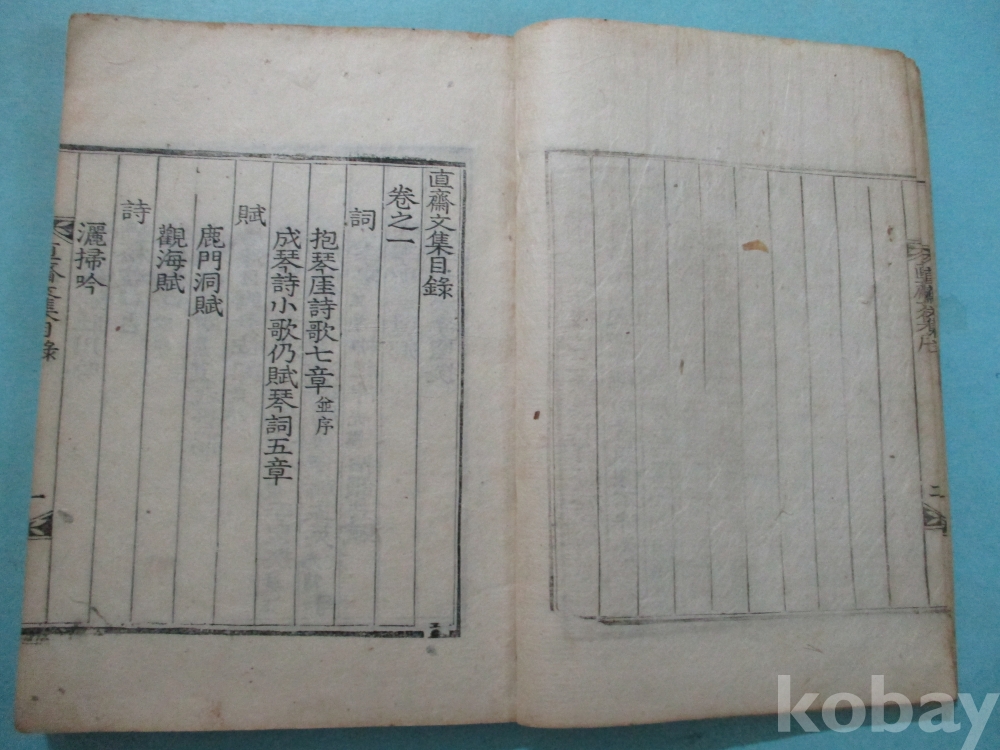 直齋文集目錄
卷之一
詞
抱琴厓詩歌七章 並序
成琴詩小歌仍賦琴詞五章
賦
鹿門洞賦
觀海賦
詩
灑掃吟
直齋文集目錄
一
二
kobay